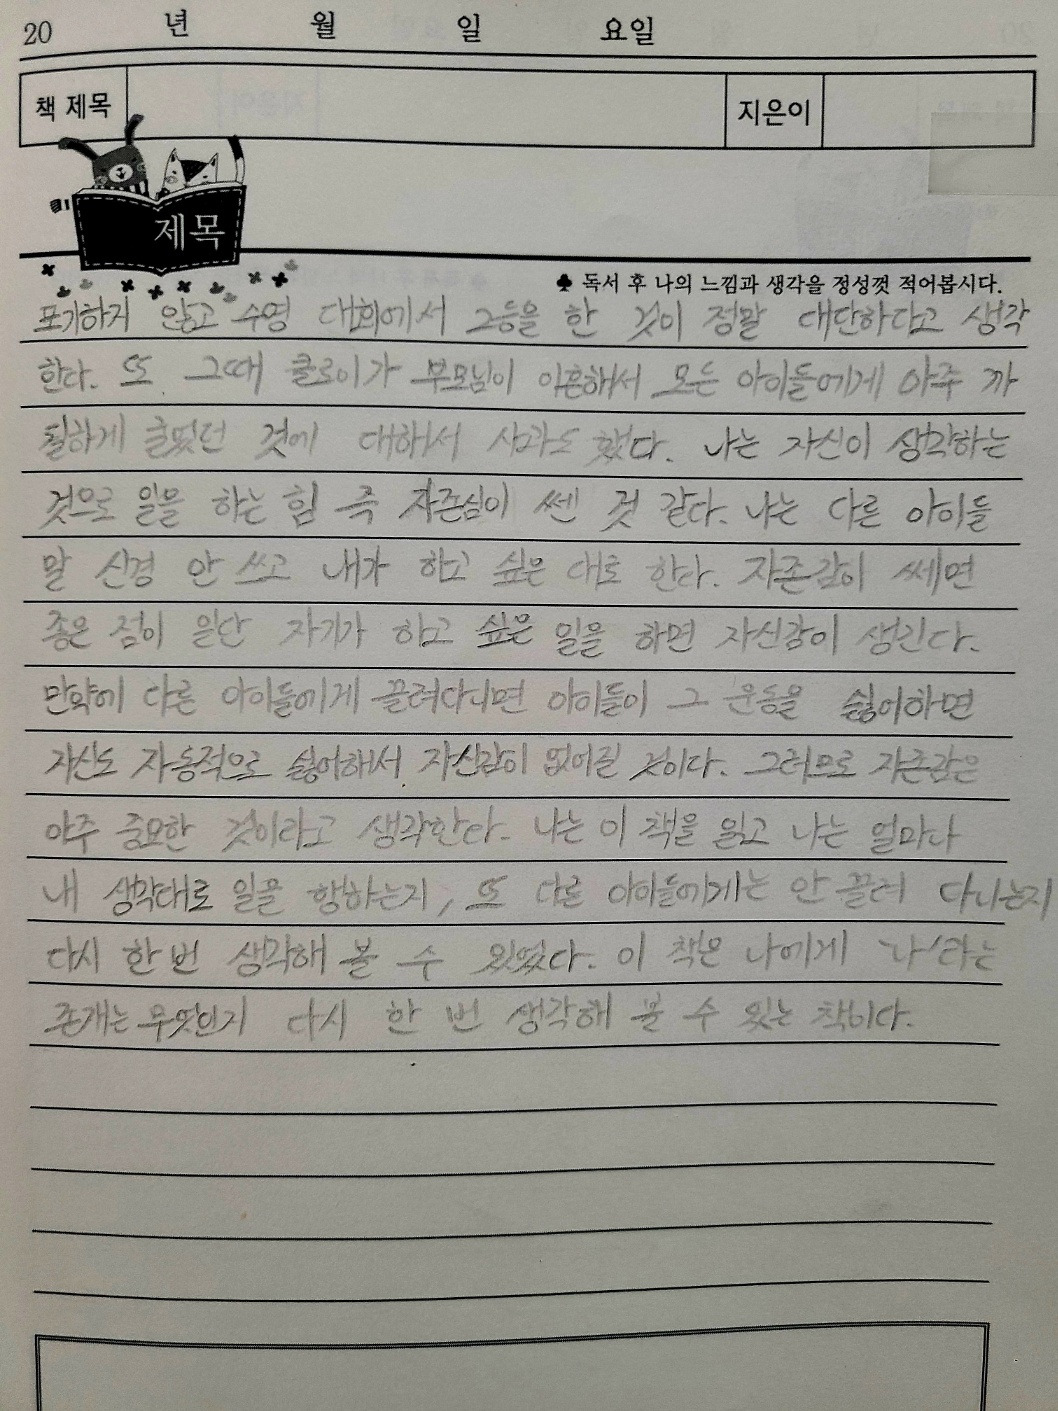 20 년 월 일 요일
책 제목 지은이
제목
♣ 독서 후 나의 느낌과 생각을 정성껏 적어봅시다.
포기하지 않고 수영 대회에서 2등을 한 것이 정말 대단하다고 생각
한다. 또 그때 클로이가 부모님이 이혼해서 모든 아이들에게 아주 까
칠하게 굴었던 것에 대해서 사과도 했다. 나는 자신이 생각하는
것으로 일을 하는 힘 즉 자존심이 쎈 것 같다. 나는 다른 아이들
말 신경 안 쓰고 내가 하고 싶은 대로 한다. 자존감이 쎄면
좋은 점이 일단 자기가 하고 싶은 일을 하면 자신감이 생긴다.
만약에 다른 아이들에게 끌려다니면 아이들이 그 운동을 싫어하면
자신도 자동적으로 싫어해서 자신감이 없어질 것이다. 그러므로 자존감은
아주 중요한 것이라고 생각한다. 나는 이 책을 읽고 나는 얼마나
내 생각대로 일을 행하는지, 또 다른 아이들에게는 안 끌려 다니는지
다시 한 번 생각해 볼 수 있었다. 이 책은 나에게 '나'라는
존재는 무엇인지 다시 한 번 생각해 볼 수 있는 책이다.